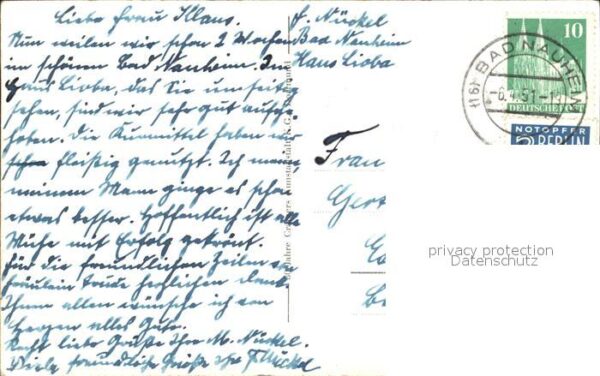 Liebe Frau Klaus.
Nun weilen wir schon 2 Wochen
im schönen Bad Nauheim. Im
Haus Lioba, das Sie umseitig
sehen, sind wir sehr gut aufge-
hoben. Die Kurmittel haben wir
schon fleißig genutzt. Ich meine
meinem Mann ginge es schon
etwas besser. Hoffentlich ist alle
Mühe mit Erfolg gekrönt.
Für die freundlichen Zeilen an
Fräulein Trude herzlichen Dank
Ihnen allen wünsche ich von
Herzen alles Gute.
Recht liebe Grüße Ihre M. Nückel.
Viele freundliche Grüße Ihr F. Nückel
F. Nückel
Bad Nauheim
Haus Lioba
Cramers Kunstanstalt K.G., Dortmund
10
DEUTSCHE POST
(16) BAD NAUHEIM
-6.4.51.-1
NOTOPFER
2 BERLIN
Frau
privacy protection
Datenschutz